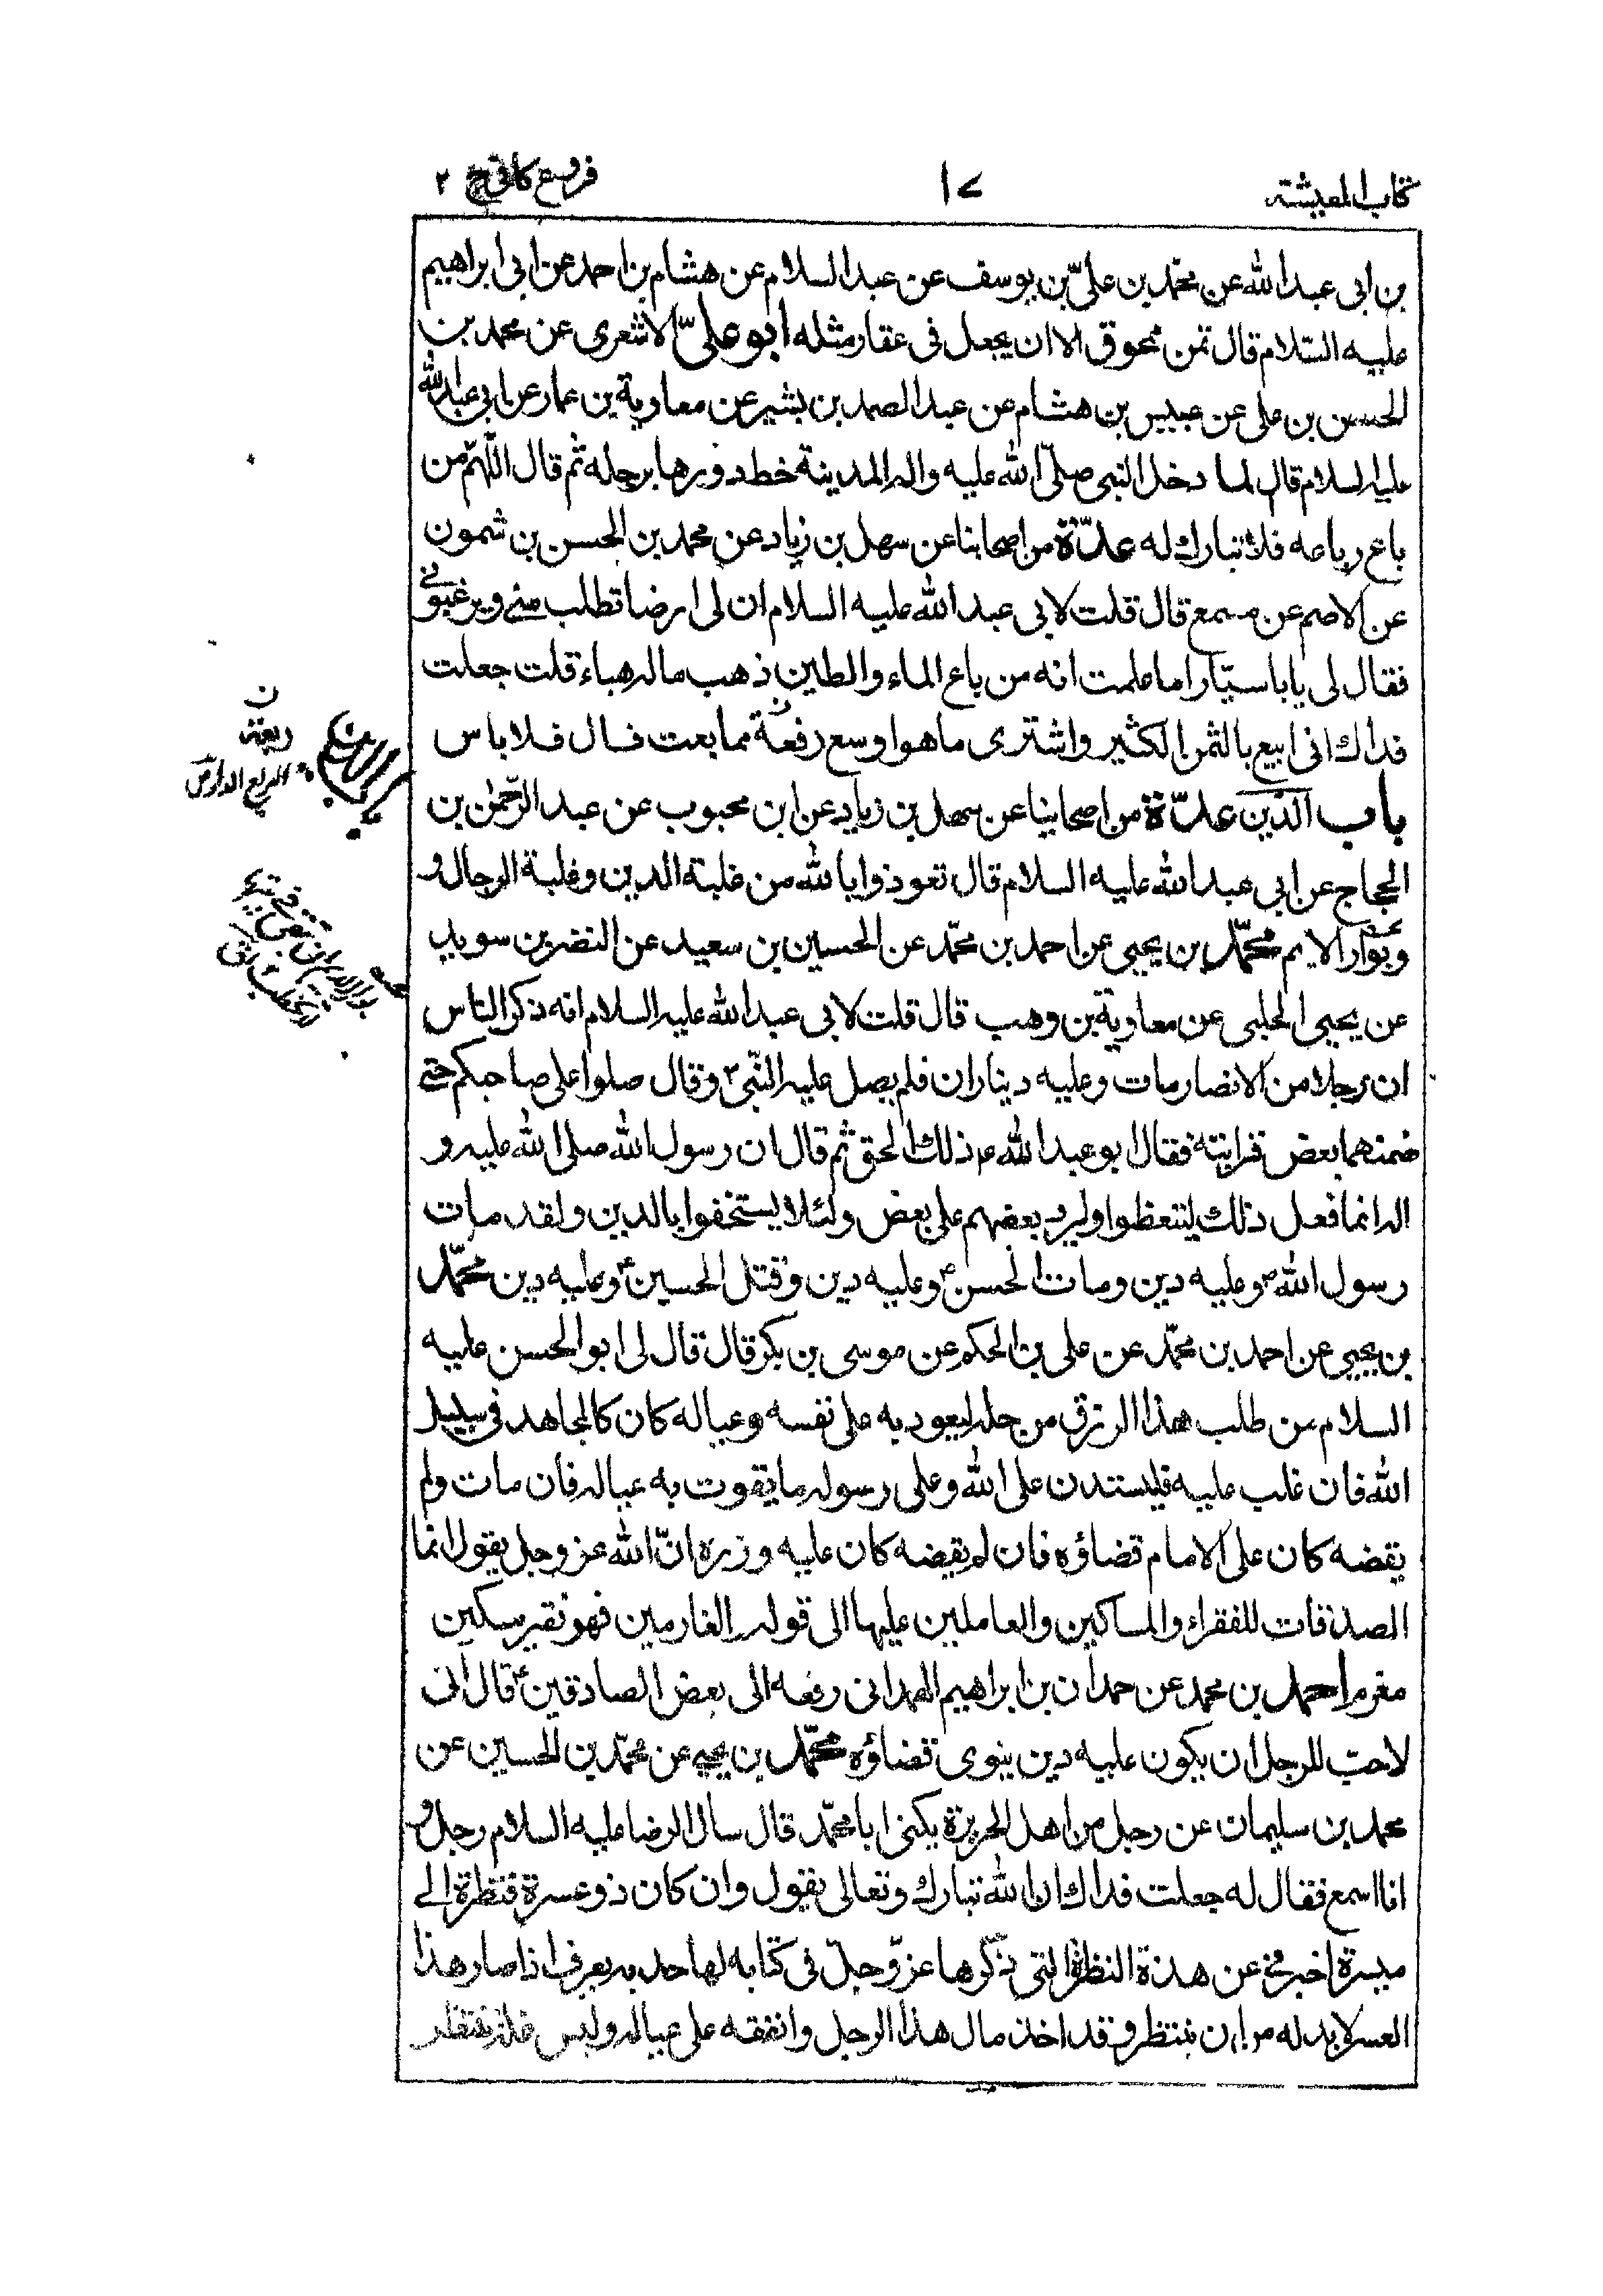 كتاب المعيشة ١٧ فروع كافي ج ٢
بن ابى عبد الله عن محمّد بن علىّ بن يوسف عن عبد السلام عن هشام بن احمد عن ابى ابراهيم
عليه السّلام قال ثمن محوق الا ان يجعل فى عقار مثله ابو علىّ الاشعرى عن محمد بن
الحسن بن على عن عبيس بن هشام عن عبد الصمد بن بشير عن معاوية بن عمار عن ابى عبد الله
عليه السلام قال لما دخل النبى صلىّ الله عليه واله المدينة خط دورها برجله ثم قال اللّهمّ من
باع رباعه فلا تبارك له عدّة من اصحابنا عن سهل بن زياد عن محمد بن الحسن بن شمون
عن الاصم عن مسمع قال قلت لابى عبد الله عليه السلام ان لى ارضا تطلب منى ويرغبونى
فقال لى يا با سيّار اما علمت انه من باع الماء والطين ذهب ماله هباء قلت جعلت
فداك انى ابيع بالثمن الكثير واشترى ما هو اوسع رقعة مما بعت فقال فلا باس
باب الدّين عدّة من اصحابنا عن سهل بن زياد عن ابن محبوب عن عبد الرّحمٰن بن
الحجاج عن ابى عبد الله عليه السلام قال تعوذوا بالله من غلبة الدين وغلبة الرجال و
وبوار الايم محمّد بن يحيى عن احمد بن محمّد عن الحسين بن سعيد عن النضر بن سويد
عن يحيى الحلبى عن معاوية بن وهب قال قلت لابى عبد الله عليه السلام انه ذكر الناس
ان رجلا من الانصار مات وعليه ديناران فلم يصل عليه النّبى ص وقال صلوا على صاحبكم حتى
ضمنهما بعض قرابته فقال ابو عبد الله ع ذلك الحق ثم قال ان رسول الله صلى الله عليه و
اله انما فعل ذلك ليتعظوا وليرد بعضهم على بعض ولئلا يستخفوا بالدين ولقد مات
رسول الله ص وعليه دين ومات الحسن ع وعليه دين وقتل الحسين ع وعليه دين محمّد
بن يحيى عن احمد بن محمّد عن على بن الحكم عن موسى بن بكر قال قال لى ابو الحسن عليه
السلام من طلب هذا الرزق من حله ليعود به على نفسه وعياله كان كالمجاهد فى سبيل
الله فان غلب عليه فليستدن على الله وعلى رسوله ما يقوت به عياله فان مات ولم
يقضه كان على الامام قضاؤه فان لم يقضه كان عليه وزره انّ الله عز وجل يقول انما
الصدقات للفقراء والمساكين والعاملين عليها الى قوله والغارمين فهو فقير مسكين
مغرم احمد بن محمد عن حمدان بن ابراهيم الهمدانى رفعه الى بعض الصادقين ع قال انى
لاحبّ للرجل ان يكون عليه دين ينوى قضاؤه محمّد بن يحيى عن محمّد بن الحسين عن
محمد بن سليمان عن رجل من اهل الجزيرة يكنى ابا محمّد قال سال الرضا عليه السلام رجل و
انا اسمع فقال له جعلت فداك ان الله تبارك وتعالى يقول وان كان ذو عسرة فنظرة الى
ميسرة اخبرنى عن هذه النظرة التى ذكرها عزّ وجلّ فى كتابه لها حد يعرف اذا صار هذا
العسر لا بد له من ان ينتظر وقد اخذ مال هذا الرجل وانفقه على عياله وليس
ن
ربعة
الربع الدار